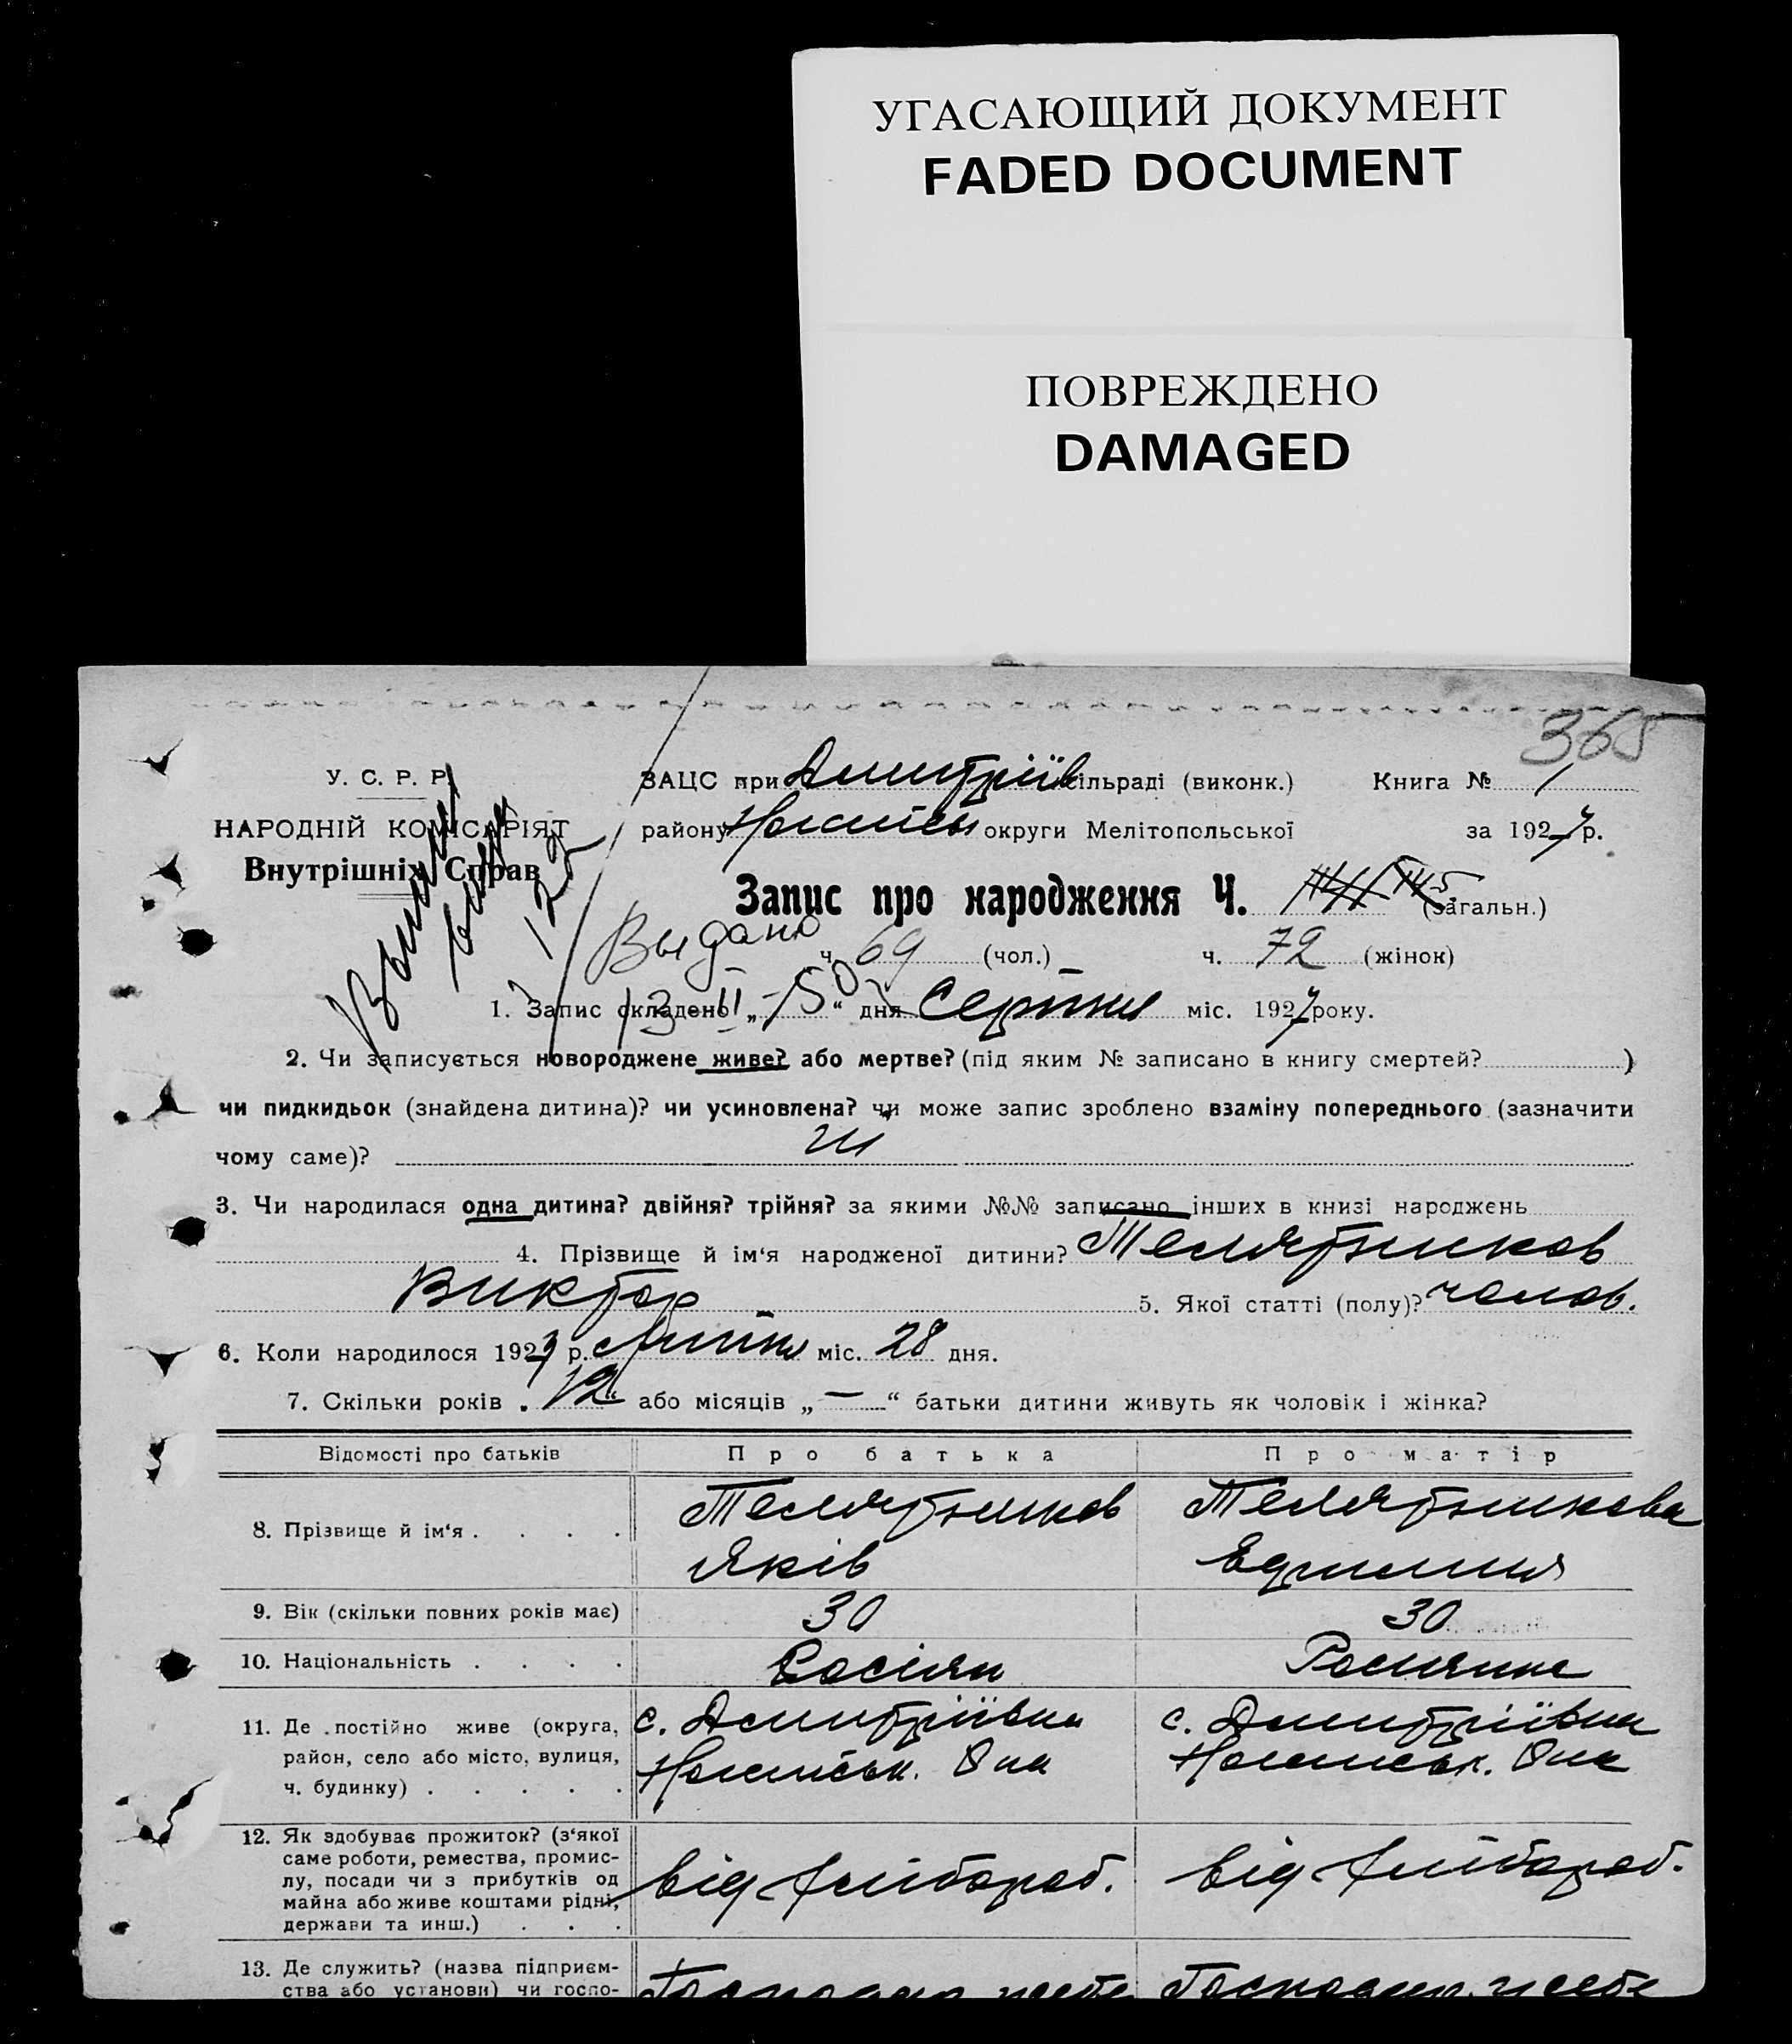 УГАСАЮЩИЙ ДОКУМЕНТ
FADED DOCUMENT
ПОВРЕЖДЕНО
DAMAGED
365
У. С. Р. Р.
НАРОДНІЙ КОМІСАРІЯТ
Внутрішніх Справ
ЗАЦС при Дмитріїв сільраді (виконк.) Книга № 1
району округи Мелітопольської за 1927 р.
Запис про народження Ч. (загальн.)
Выдано
ч. 69 (чол.) ч. 72 (жінок)
1. Запис складено „ “ дня Серпня міс. 1927 року.
2. Чи записується новороджене живе? або мертве? (під яким № записано в книгу смертей? )
чи пидкидьок (знайдена дитина)? чи усиновлена? чи може запис зроблено взаміну попереднього (зазначити
чому саме)?
3. Чи народилася одна дитина? двійня? трійня? за якими №№ записано інших в книзі народжень
4. Прізвище й ім‘я народженої дитини? Телятников
Виктор 5. Якої статті (полу)? чолов.
6. Коли народилося 1927 р. Липня міс. 28 дня.
7. Скільки років „ 12 “ або місяців „ — “ батьки дитини живуть як чоловік і жінка?
Відомості про батьків Про батька Про матір
8. Прізвище й ім‘я . . . . Телятников Телятникова
Яків
9. Вік (скільки повних років має) 30 30
10. Національність . . . . Росіян Росиянка
11. Де постійно живе (округа, с. Дмитріївка с. Дмитріївка
район, село або місто, вулиця,
ч. будинку) . . . . .
12. Як здобуває прожиток? (з‘якої
саме роботи, ремества, промис-
лу, посади чи з прибутків од від хлібороб. від хлібороб.
майна або живе коштами рідні,
держави та инш.) . . .
13. Де служить? (назва підприєм-
ства або установи) чи госпо-